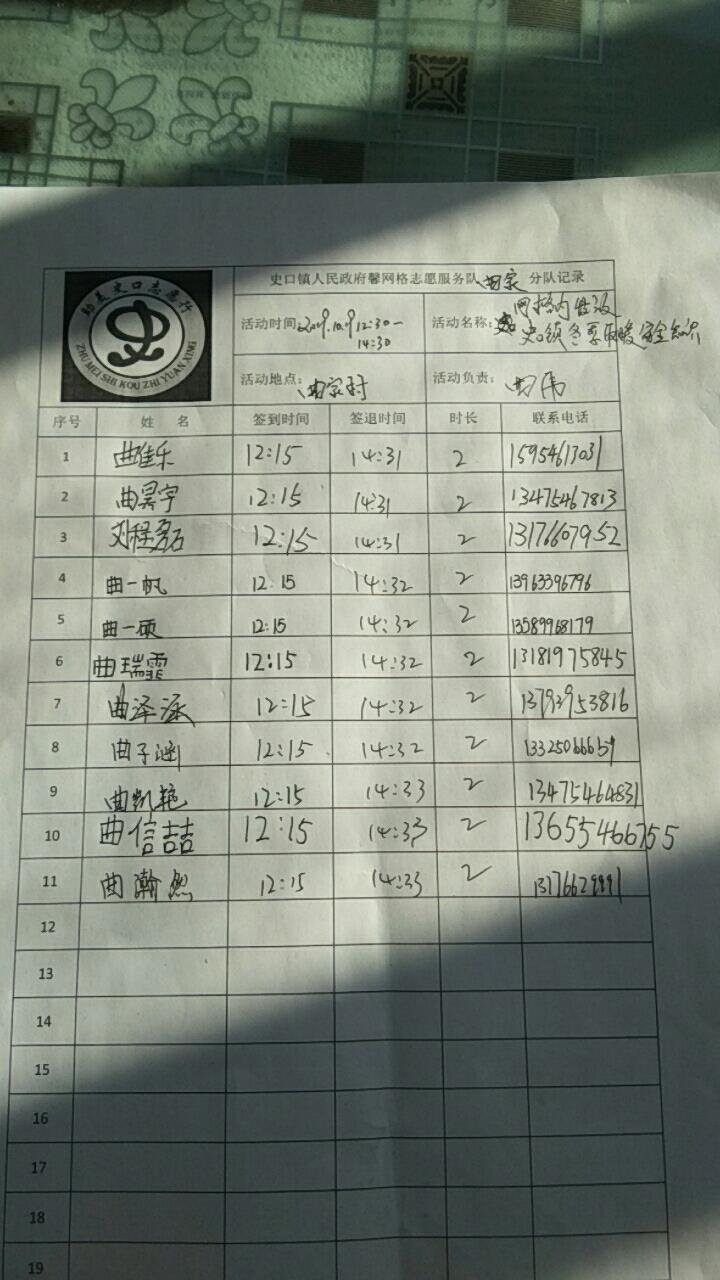 助美史口志愿行
ZHU MEI SHI KOU ZHI YUAN XING
史口镇人民政府馨网格志愿服务队 曲家 分队记录
活动时间: 2019.10.9 12:30-14:30
活动名称: 网格内
史口镇冬季取暖安全知识
活动地点: 曲家村
活动负责: 曲伟
序号 姓 名 签到时间 签退时间 时长 联系电话
1 曲佳乐 12:15 14:31 2 15954613031
2 曲昊宇 12:15 14:31 2 13475467813
3 刘程磊 12:15 14:31 2 13176607952
4 曲一帆 12:15 14:32 2 13963396796
5 曲一硕 12:15 14:32 2 13589968179
6 曲瑞霏 12:15 14:32 2 13181975845
7 曲泽涵 12:15 14:32 2 13792953816
8 曲子涵 12:15 14:32 2
9 曲凯艳 12:15 14:33 2 13475464831
10 曲信喆 12:15 14:33 2 13655466755
11 曲瀚然 12:15 14:33 2
12
13
14
15
16
17
18
19